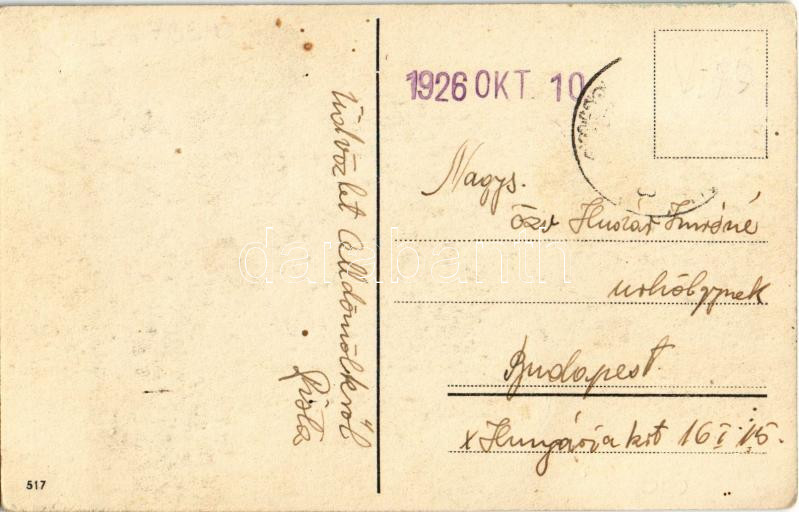 Üdvözlet Celldömölkről
Pista
1926 OKT. 10
Nagys.
özv Huszár Imréné
urhölgynek
Budapest.
x Hungária krt 16 I 15.
517
darabanth